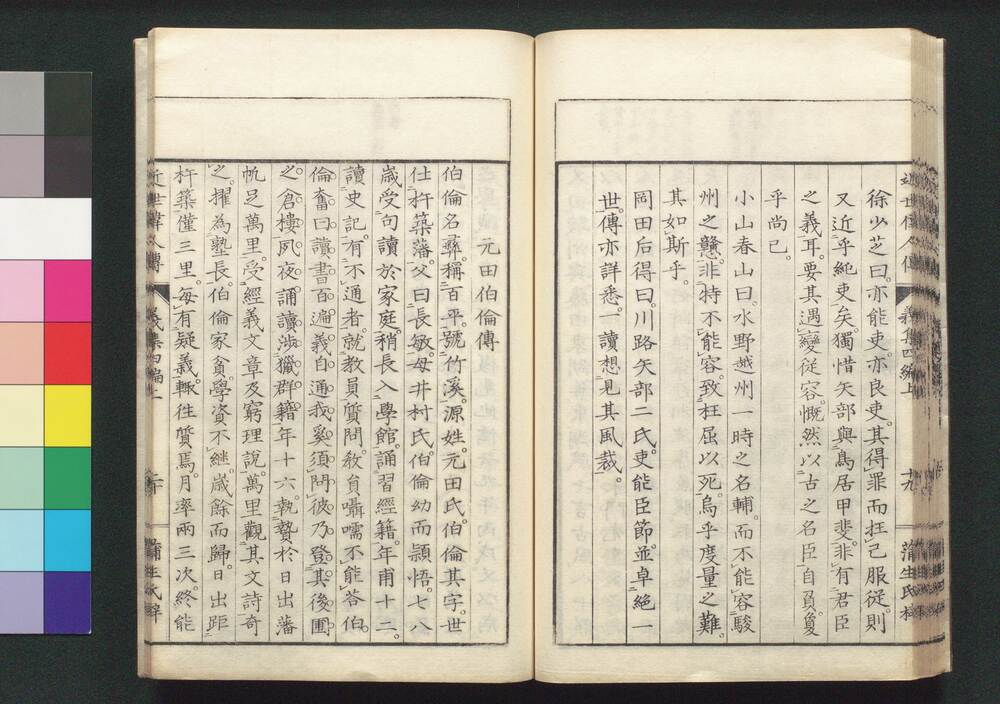 徐少芝曰。亦能吏。亦良吏。其得罪而抂己服從。則
又近乎純吏矣。獨惜矢部與鳥居甲斐。非有君臣
之義耳。要其遇變從容。慨然以古之名臣自負。敻
乎尚已。
小山春山曰。水野越州一時之名輔。而不能容駿
州之戇。非特不能容。致枉屈以死。烏乎度量之難。
其如斯乎。
岡田后得曰。川路矢部二氏。吏能臣節。並卓絶一
世。傳亦詳悉。一讀想見其風裁。
近世偉人傳
義集四編上
十九
蒲生氏梓
元田伯倫傳
伯倫名彝。稱百平。號竹溪。源姓。元田氏。伯倫其字。世
仕杵築藩。父曰長敏。母井村氏。伯倫幼而頴悟。七八
歳受句讀於家庭。稍長入學館。誦習經籍。年甫十二。
讀史記。有不通者。就敎員質問。敎員囁嚅不能荅。伯
倫奮曰。讀書百遍。義自通。我奚須問彼。乃登其後圃
之倉樓。夙夜誦讀。渉獵群籍。年十六。執贄於日出藩
帆足萬里。受經義文章及窮理説。萬里觀其文詩奇
之。擢為塾長。伯倫家貧。學資不繼。歳餘而歸。日出距
杵築僅三里。毎有疑義。輙往質焉。月率兩三次。終能
近世偉人傳
義集四編上
二十
蒲生氏梓